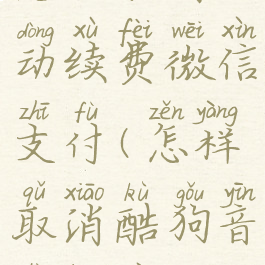 dòng xù fèi wēi xìn
动续费微信
zhī fù zěn yàng
支付(怎样
qǔ xiāo kù gǒu yīn
取消酷狗音